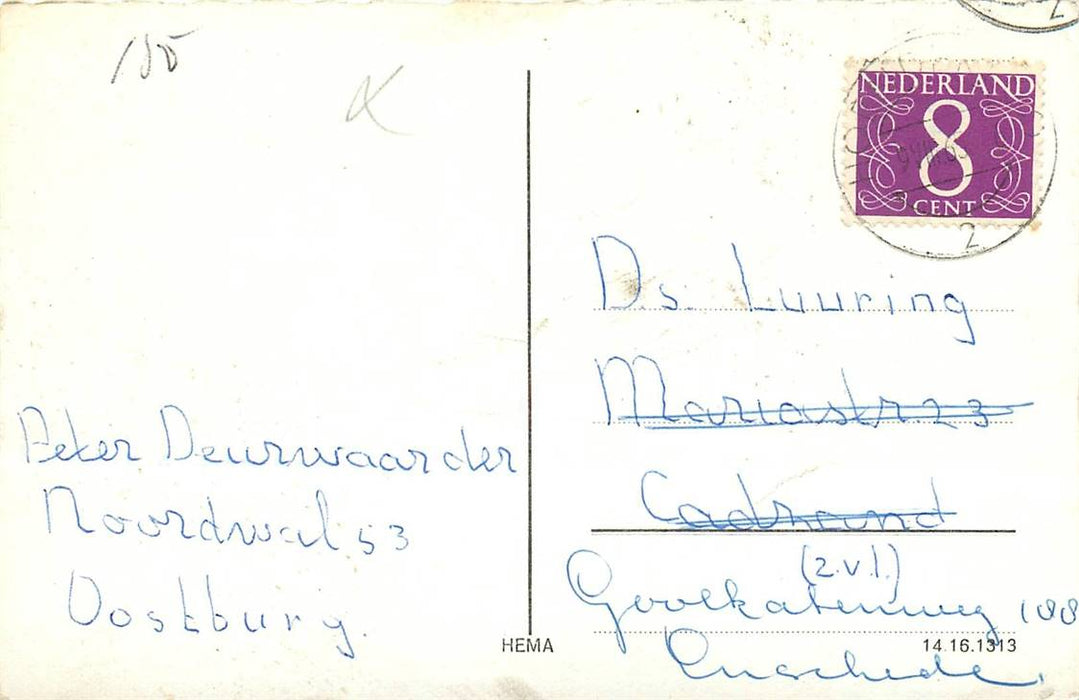 NEDERLAND
8
CENT
2
2
Ds. Luuring
Mariastr 23
Cadzand
(z.v.l.)
Goolkatenweg 188
Enschede.
Peter Deurwaarder
Noordwal 53
Oostburg.
HEMA
14.16.1313